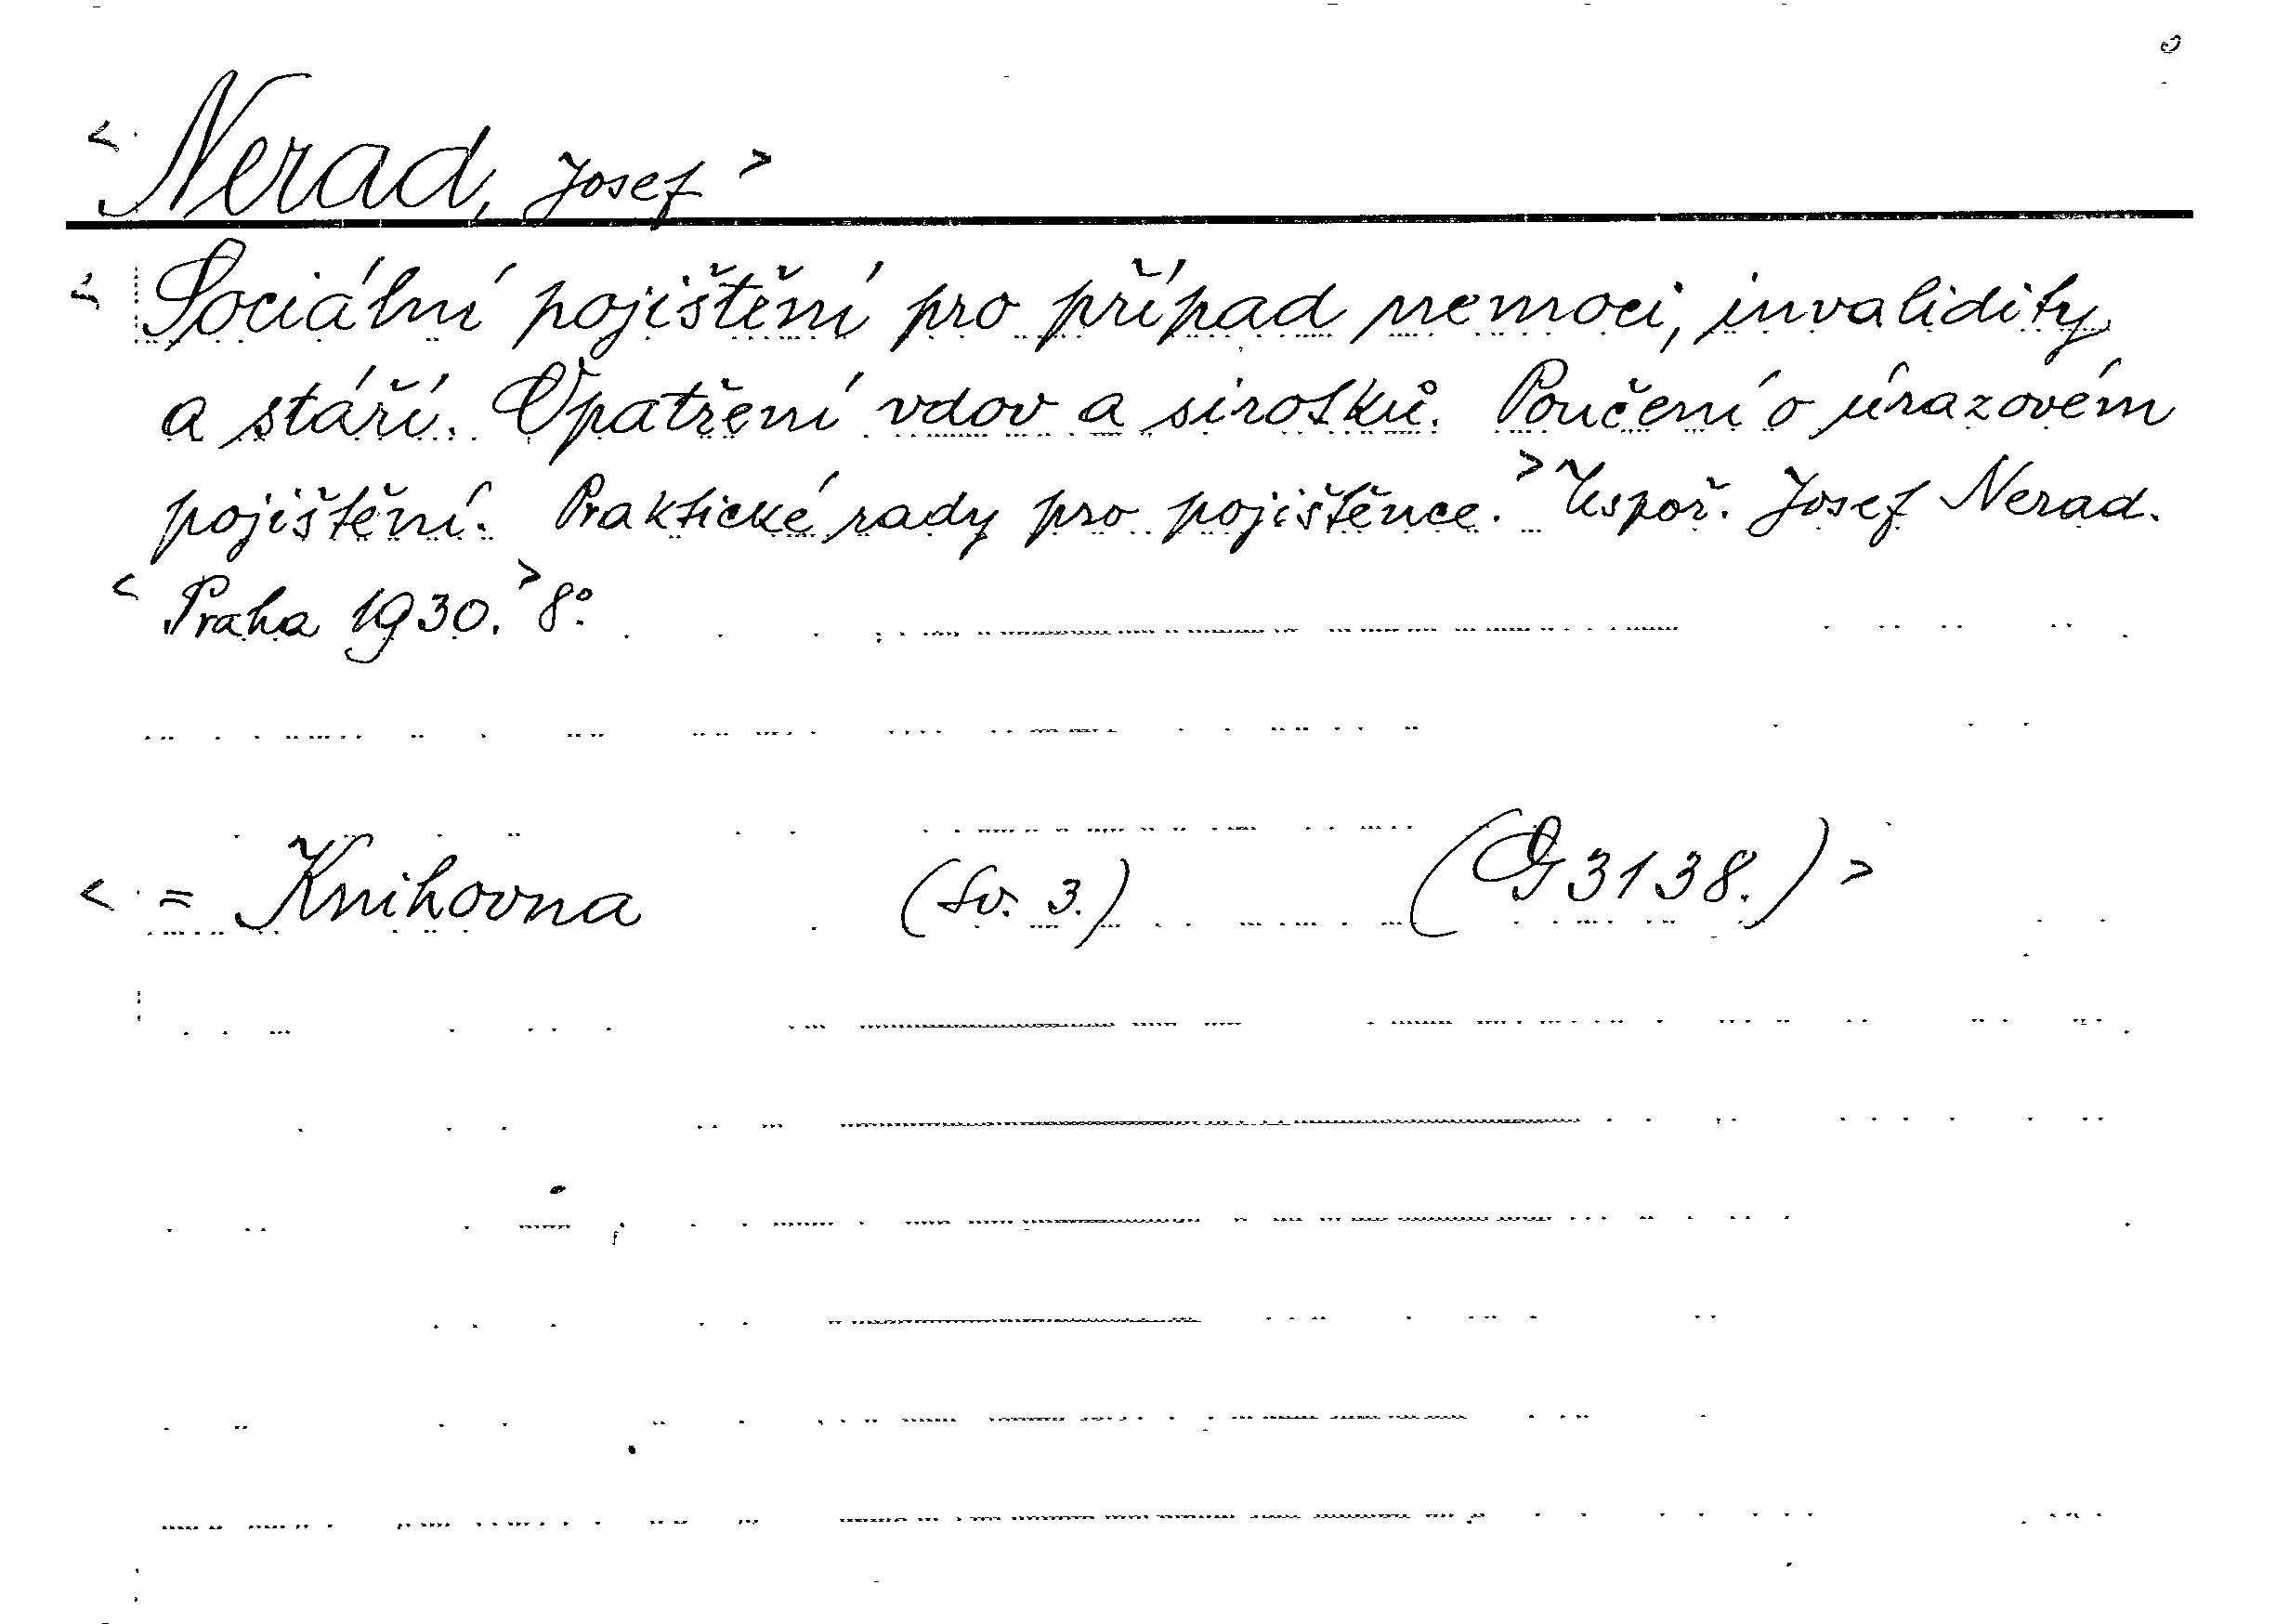 < Nerad, Josef >
< Sociální pojištění pro případ nemoci, invalidity
a stáří. Opatření vdov a sirotků. Poučení o úrazovém
pojištění. Praktické rady pro pojištěnce. > Uspoř. Josef Nerad.
< Praha 1930. > 8°.
< = Knihovna (Sv. 3.) (G 3138.) >